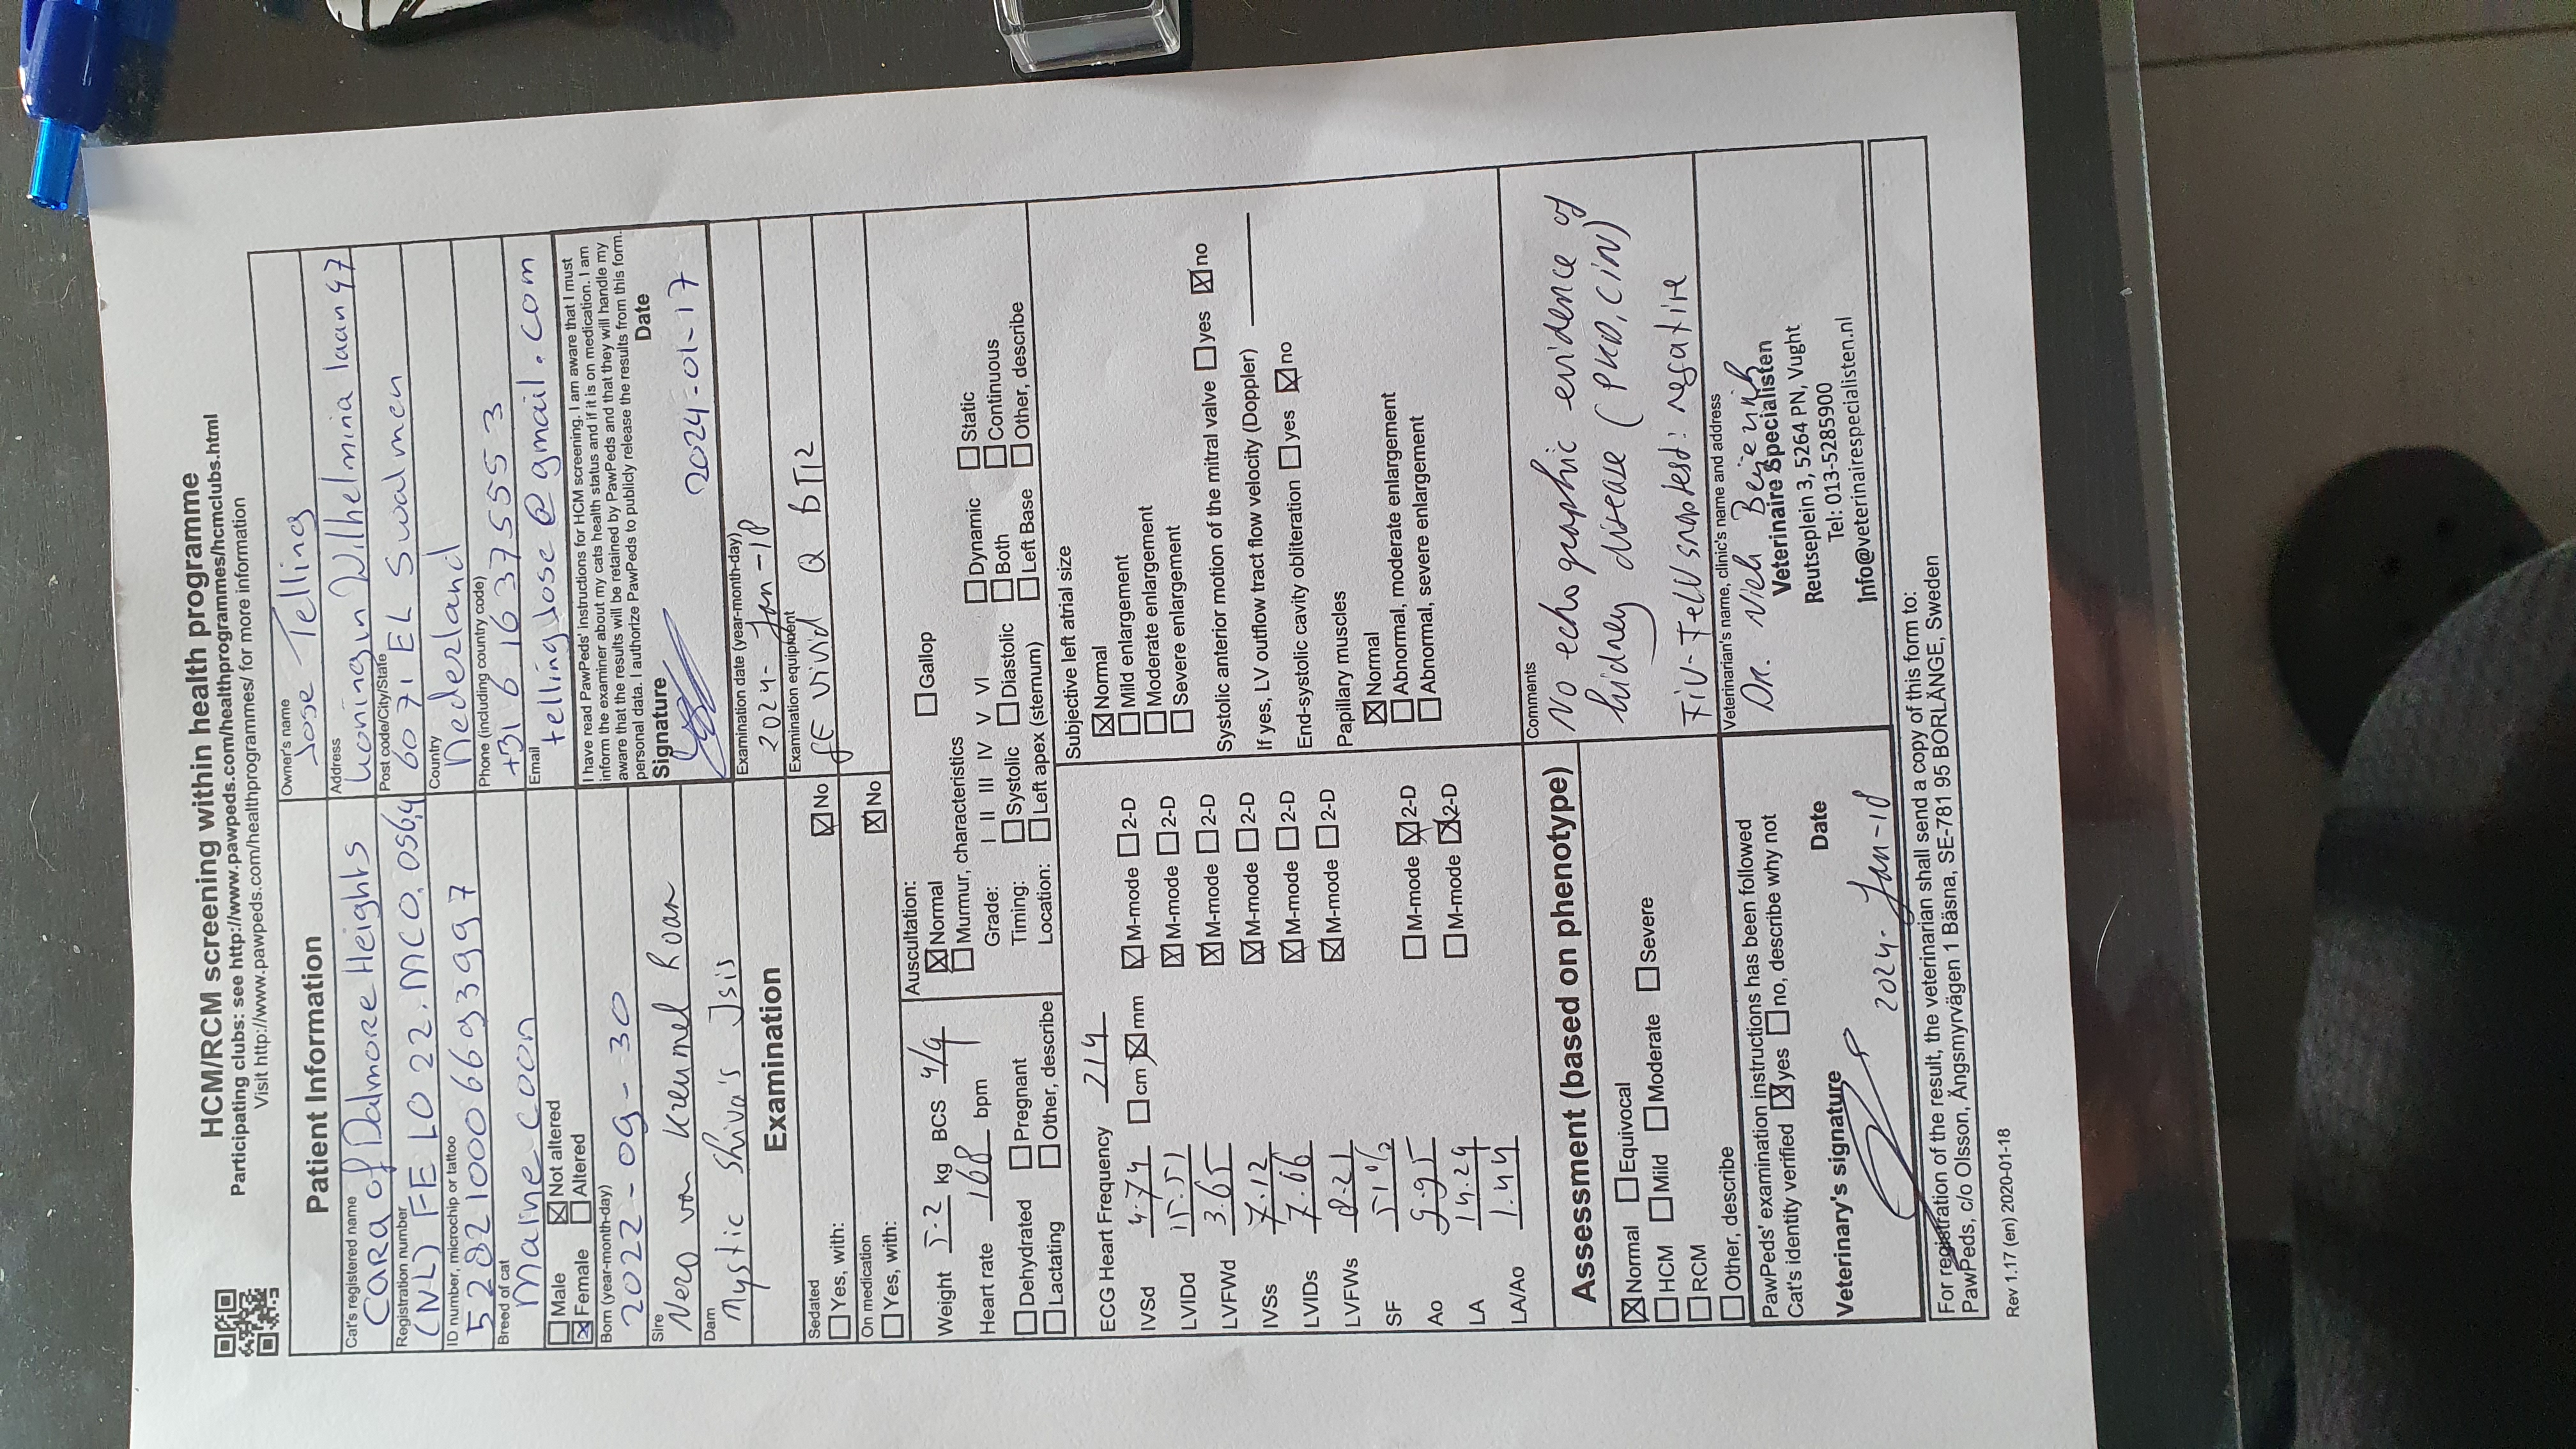 HCM/RCM screening within health programme
Participating clubs: see http://www.pawpeds.com/healthprogrammes/hcmclubs.html
Visit http://www.pawpeds.com/healthprogrammes/ for more information
Patient Information
Cat's registered name
Cara of Dalmore Heights
Registration number
(NL) FE LO 22.MCO.0564
ID number, microchip or tattoo
528210006693997
Breed of cat
Maine Coon
☐ Male ☒ Not altered
☒ Female ☐ Altered
Born (year-month-day)
2022-09-30
Sire
Nero von Kreumel Roan
Dam
Mystic Shiva's Isis
Owner's name
Jose Telling
Address
Koningin Wilhelmina laan 47
Post code/City/State
6071 EL Swalmen
Country
Nederland
Phone (including country code)
+31 6 16 37 555 3
Email
tellingjose@gmail.com
I have read PawPeds' instructions for HCM screening. I am aware that I must
inform the examiner about my cats health status and if it is on medication. I am
aware that the results will be retained by PawPeds and that they will handle my
personal data. I authorize PawPeds to publicly release the results from this form.
Signature Date
2024-01-17
Examination
Examination date (year-month-day)
2024-Jan-18
Sedated
☐ Yes, with: ☒ No
Examination equipment
GE vivid
On medication
☐ Yes, with: ☒ No
Weight 5.2 kg BCS 4/9
Heart rate 168 bpm
☐ Dehydrated ☐ Pregnant
☐ Lactating ☐ Other, describe
Auscultation:
☒ Normal ☐ Gallop
☐ Murmur, characteristics
Grade: I II III IV V VI ☐ Dynamic ☐ Static
Timing: ☐ Systolic ☐ Diastolic ☐ Both ☐ Continuous
Location: ☐ Left apex (sternum) ☐ Left Base ☐ Other, describe
ECG Heart Frequency 214
IVSd 4.74 ☐ cm ☒ mm ☒ M-mode ☐ 2-D
LVIDd 15.51 ☒ M-mode ☐ 2-D
LVFWd 3.65 ☒ M-mode ☐ 2-D
IVSs 7.12 ☒ M-mode ☐ 2-D
LVIDs 7.66 ☒ M-mode ☐ 2-D
LVFWs 8.21 ☒ M-mode ☐ 2-D
SF 51%
Ao 9.95 ☐ M-mode ☒ 2-D
LA 14.29 ☐ M-mode ☒ 2-D
LA/Ao 1.44
Subjective left atrial size
☒ Normal
☐ Mild enlargement
☐ Moderate enlargement
☐ Severe enlargement
Systolic anterior motion of the mitral valve ☐ yes ☒ no
If yes, LV outflow tract flow velocity (Doppler)
End-systolic cavity obliteration ☐ yes ☒ no
Papillary muscles
☒ Normal
☐ Abnormal, moderate enlargement
☐ Abnormal, severe enlargement
Assessment (based on phenotype)
☒ Normal ☐ Equivocal
☐ HCM ☐ Mild ☐ Moderate ☐ Severe
☐ RCM
☐ Other, describe
Comments
No echographic evidence of
kidney disease (PKD, CIN)
FIV-FeLV snaptest: negative
PawPeds' examination instructions has been followed
Cat's identity verified ☒ yes ☐ no, describe why not
Veterinary's signature Date
2024-Jan-18
Veterinarian's name, clinic's name and address
Dr. Niek Beijerink
Veterinaire Specialisten
Reutseplein 3, 5264 PN, Vught
Tel: 013-5285900
Info@veterinairespecialisten.nl
For registration of the result, the veterinarian shall send a copy of this form to:
PawPeds, c/o Olsson, Ängsmyrvägen 1 Bäsna, SE-781 95 BORLÄNGE, Sweden
Rev 1.17 (en) 2020-01-18